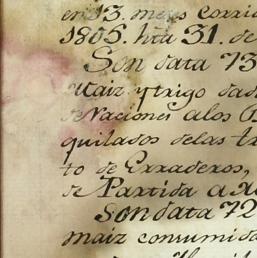 en 13. meses corrid
1805. hta 31. de
Son data 73
Maiz y trigo dad
de Naciones a los O
quilados de las tr
to de Erraderos,
de Partida a
Son data 72
maiz consumido